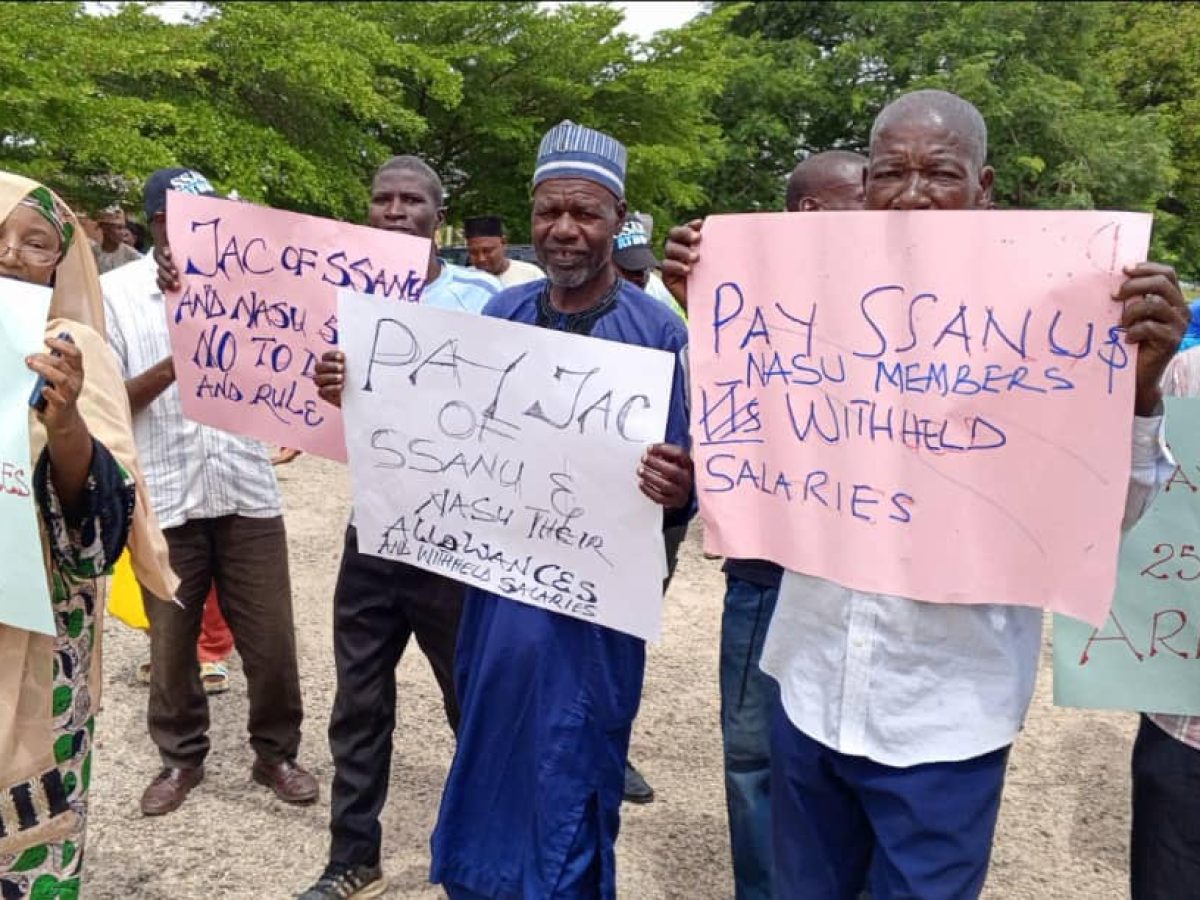 JAC OF SSANU
AND NASU S
NO TO
AND RULE
PAY JAC
OF
SSANU &
NASU THEIR
ALLOWANCES
AND WITHHELD SALARIES
PAY SSANU &
NASU MEMBERS
WITHHELD
SALARIES
ES
A
25
ARR